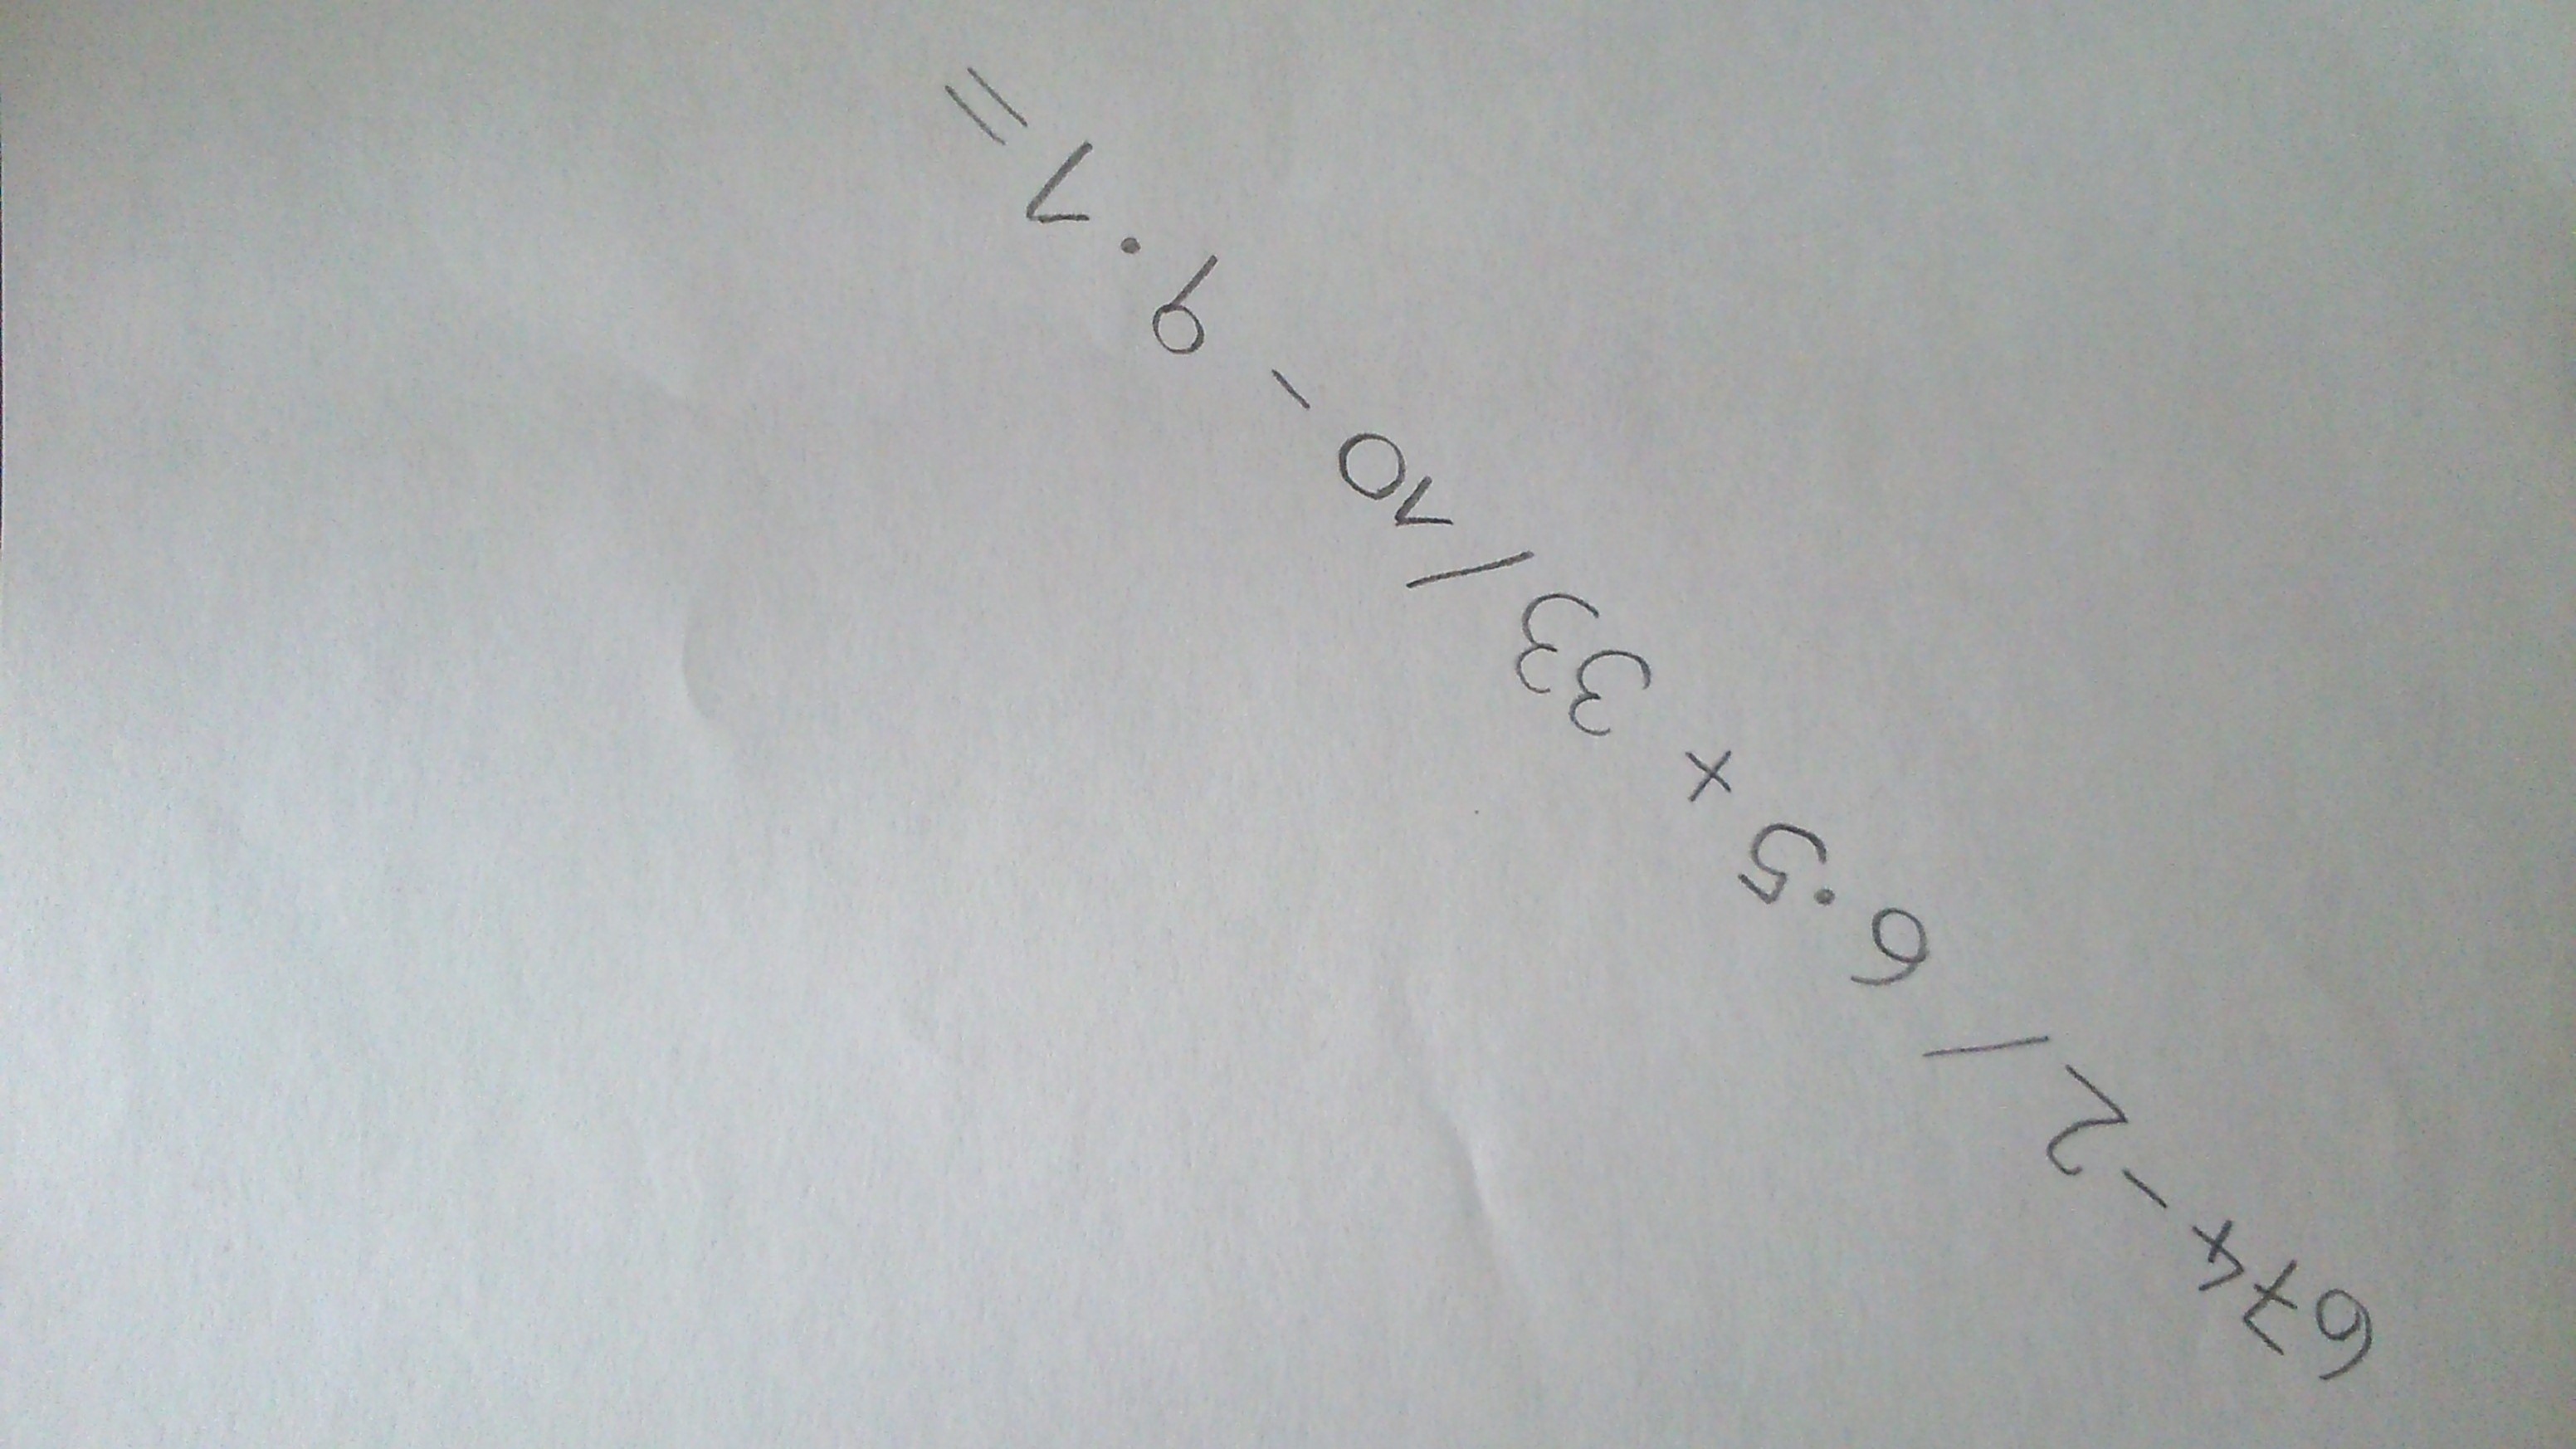 674 - 2 / 6.5 x 33 / 10 - 9.1 =